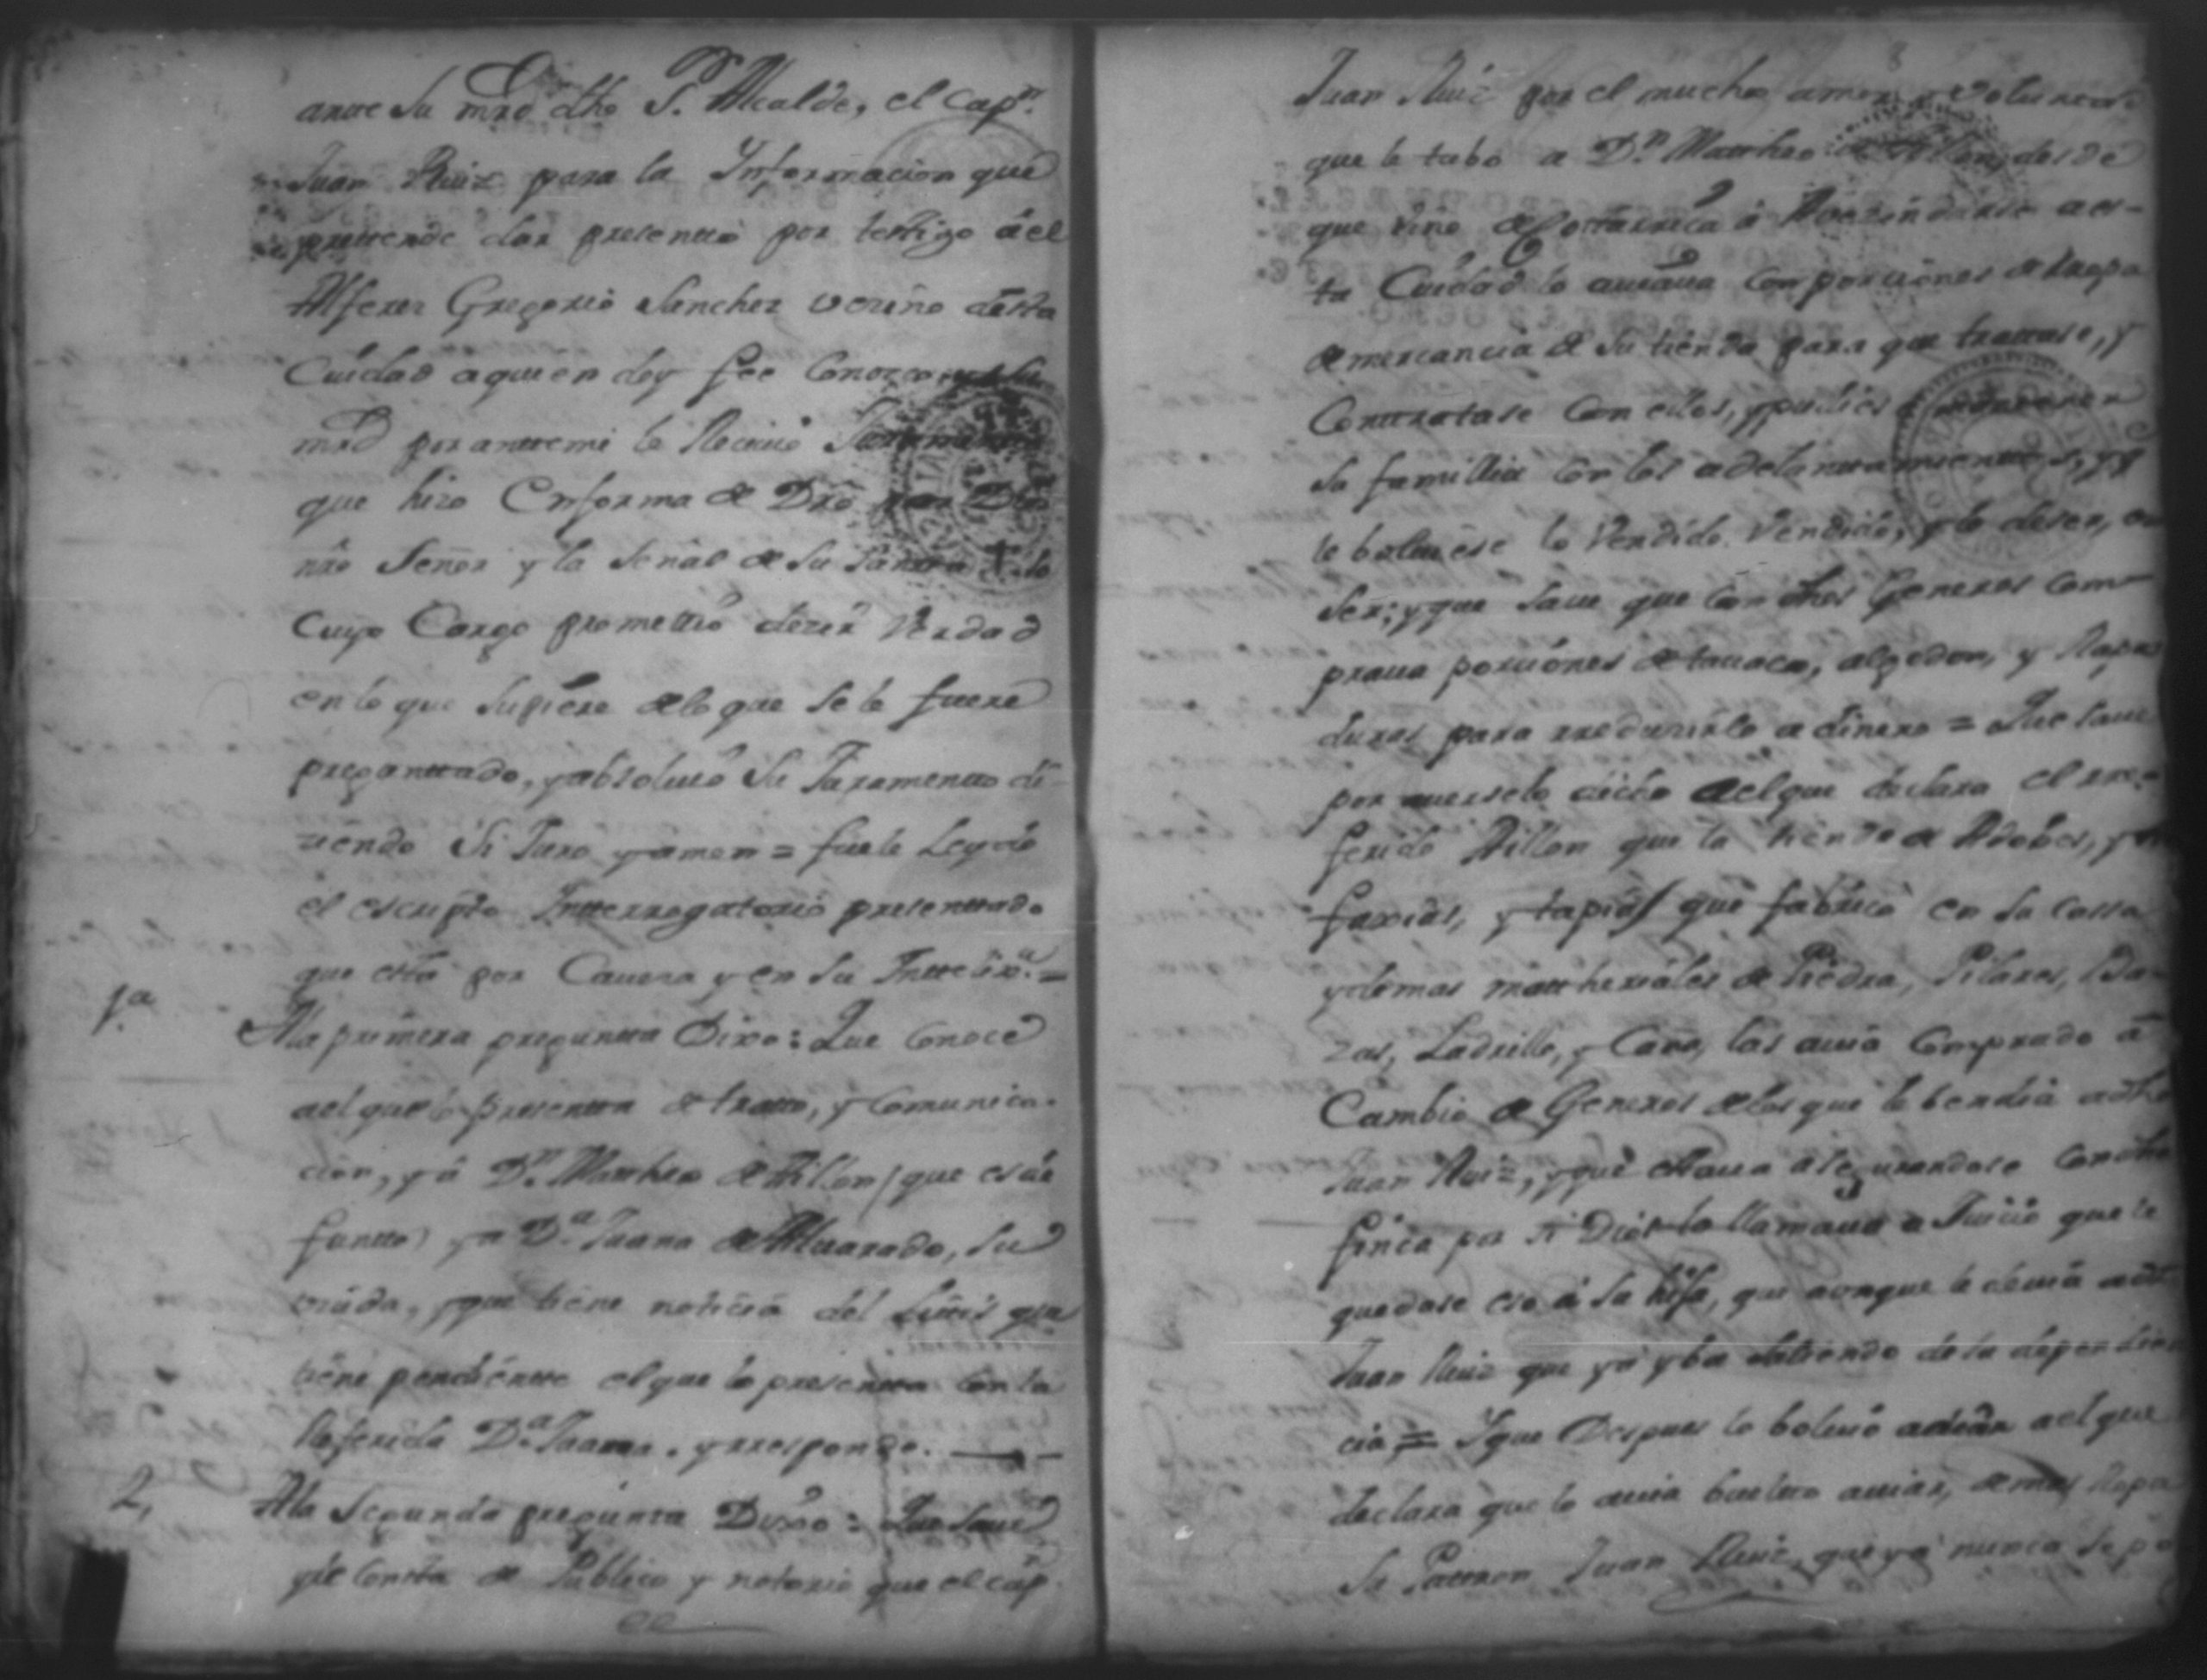 antte su mrd dho Sr. Alcalde, el Capn.
Juan Ruiz para la Ynformacion que
prettende dar presentto por testigo áel
Alferez Gregorio Sanchez vezino desta
Ciudad aquien doy fee Conozco
mrd por anttemi le Reciuió Juramento
que hizo Enforma de Dro por Dios
nro Señor y la señal de su Santta
Cuyo Cargo promettió dezir Verdad
en lo que supiere delo que se le fuere
preganttado, yabsoluió su Juramentto di-
ziendo Si Juro yamen = fuele Leydo
el escripto Ynterrogatorio presenttado
que está por Caueza y en su Yntteligª. =
1.ª
Ala primera pregunta Dixo: Que Conoce
ael que lo presentta de tratto, y Comunica-
cion, y á Dn. Matheo de Aillon (que es di-
funtto) ya Dª. Juana de Aluarado, su
viuda, y que tiene noticia del Littis que
tiene pendientte el que lo presentta con la
Referida Dª. Juana. yrresponde.
2,
Ala Segunda pregunta Dixo: Que saue
yle Consta de Publico y notorio que el cap.
Juan Ruiz por el mucho amor y Voluntad
que le tubo a Dn. Matheo de Aillon, desde
que vino de Costtarrica á Avezindarse aes-
ta Ciudad lo auiaua con porciones de Rropa
de mercancia de su tienda para que trattase, y
Conttratase con ellos, y pudiese mantener
su familia con los adelantamienttos, y q
le boluiese lo Vendido Vendido,
ser; y que saue que con dhos Generos Com-
praua porciones de tauaco, algodon, y Rapa
duras para rreducirlo a dinero = Que saue
por auerselo dicho áel que declara el rre-
ferido Aillon que la tienda de Adobes, y
faxias, y tapias que fabricó en su cassa
y demas mattheriales de Piedra, Pilares, Ba-
zas, Ladrillo, y Caña, las auia Comprado á
Cambio de Generos de los que le bendia adho
Juan Ruiz, y que estaua asegurandose con dha
finca por si Dios lo llamaua a Juicio que le
quedase eso á su hija, que aunque le deuia adho
Juan Ruiz que ya yba saliendo de la dependen
cia = Yque Despues lo boluió adezir ael que
declara que lo auia buelto auiar, de mas Ropa
su Pattron Juan Ruiz, que ya nunca